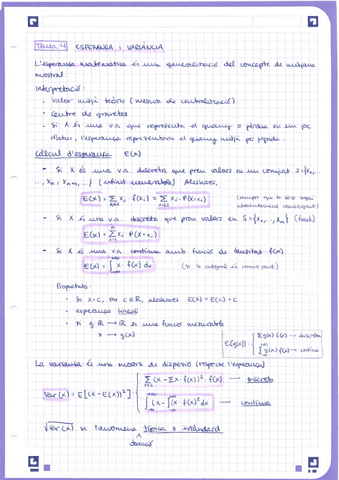 Tema 4 ESPERANÇA I VARIÀNCIA
L'esperança matemàtica és una generalització del concepte de mitjana
mostral
Interpretació:
· Valor mitjà teòric (mesura de centralització)
· Centre de gravetat
· Si X és una v.a. que representa el guany o pèrdua en un joc
d'atzar, l'esperança representaria el guany mitjà per jugada
Càlcul d'esperança E(X)
- Si X és una v.a. discreta que pren valors en un conjunt S={x₁,
..., xₙ, xₙ₊₁, ...} (infinit numerable) Aleshores,
E(X) = Σ xᵢ · f(xᵢ) = Σ xᵢ · P(X=xᵢ)
- Si X és una v.a. discreta que pren valors en S={x₁, ..., xₙ} (finit)
E(X) = Σ xᵢ · P(X=xᵢ)
- Si X és una v.a. contínua amb funció de densitat f(x)
E(X) = ∫ x · f(x) dx (si la integral és convergent)
Propietats:
· Si X=c, on c∈ℝ, aleshores E(X)=E(c)=c
· esperança lineal
· Si g: ℝ → ℝ és una funció mesurable
x → g(x)
E[g(x)] = Σ g(x) f(x) → discreta
∫ g(x) f(x) → contínua
La variància és una mesura de dispersió (respecte l'esperança)
Var(X) = E[(X-E(X))²]
Σ (x - Σx · f(x))² · f(x) → discreta
∫ (x - ∫x · f(x))² dx → contínua
√Var(X) se l'anomena típica o estàndard
desviació